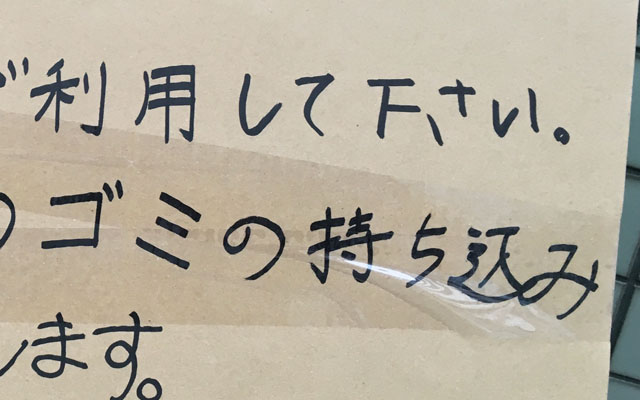 ご利用して下さい。
のゴミの持ち込み
します。